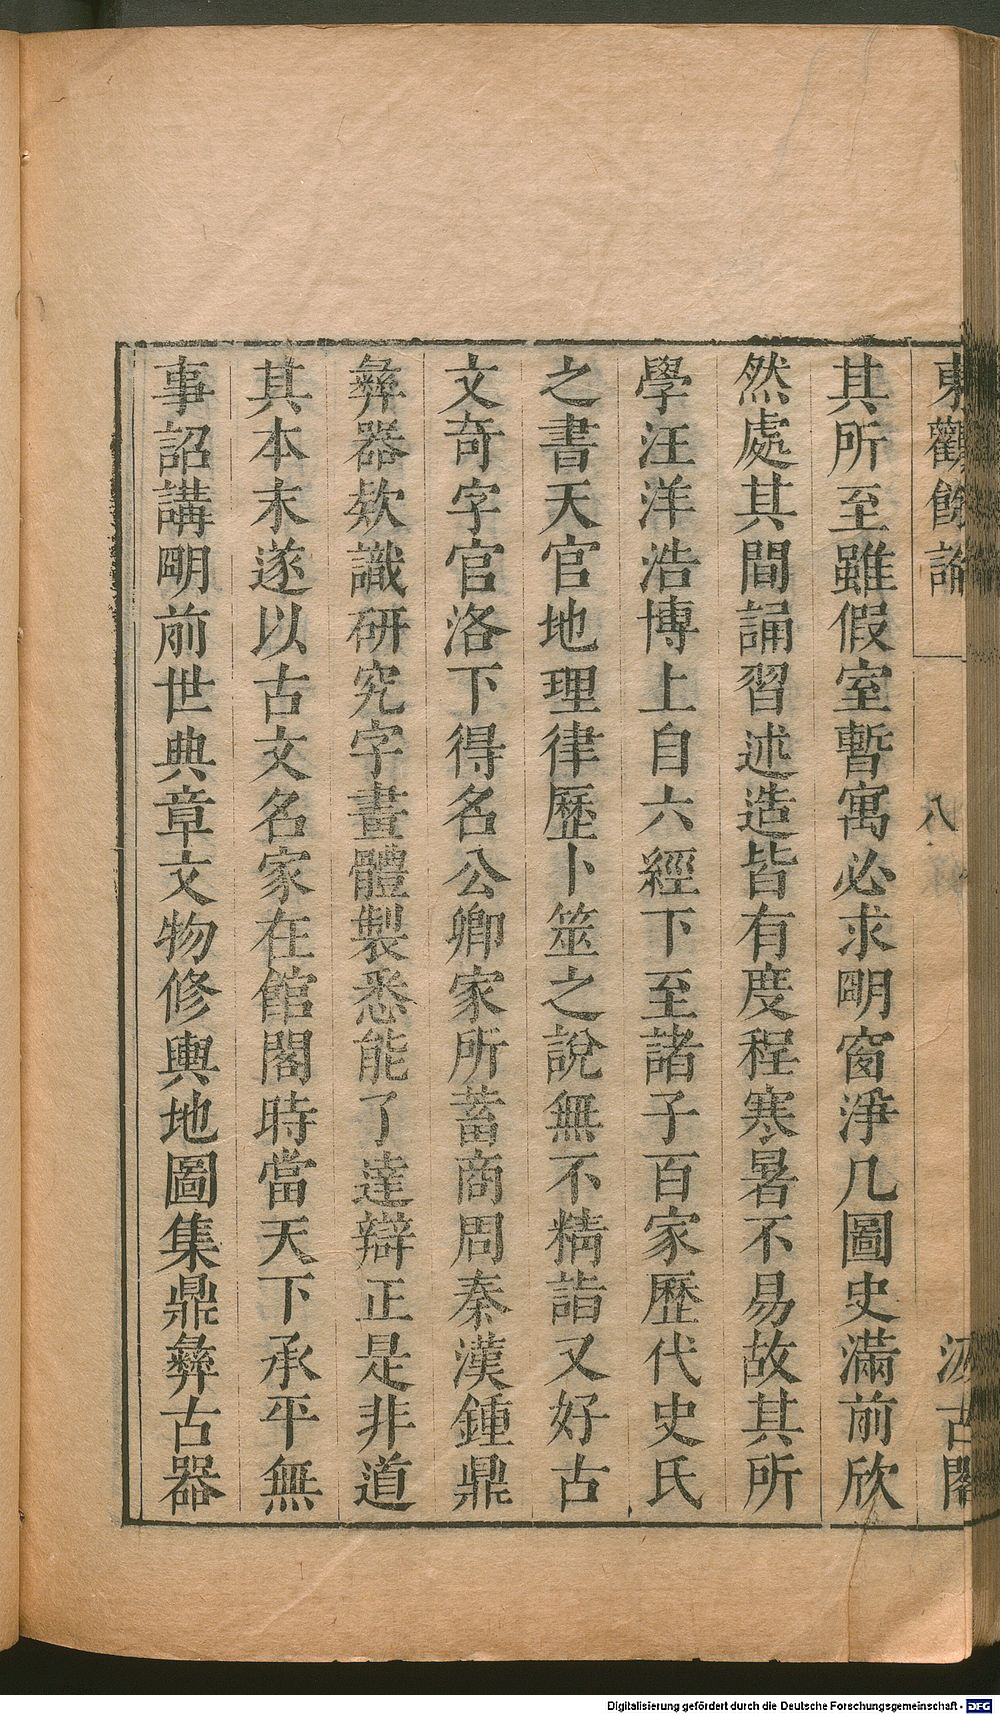 東觀餘論
八
汲古閣
其所至雖假室暫寓必求明窗淨几圖史滿前欣
然處其間誦習述造皆有度程寒暑不易故其所
學汪洋浩博上自六經下至諸子百家歷代史氏
之書天官地理律歷卜筮之說無不精詣又好古
文奇字官洛下得名公卿家所蓄商周秦漢鍾鼎
彝器欵識研究字畫體製悉能了達辯正是非道
其本末遂以古文名家在館閣時當天下承平無
事詔講明前世典章文物修輿地圖集鼎彝古器
Digitalisierung gefördert durch die Deutsche Forschungsgemeinschaft - DFG